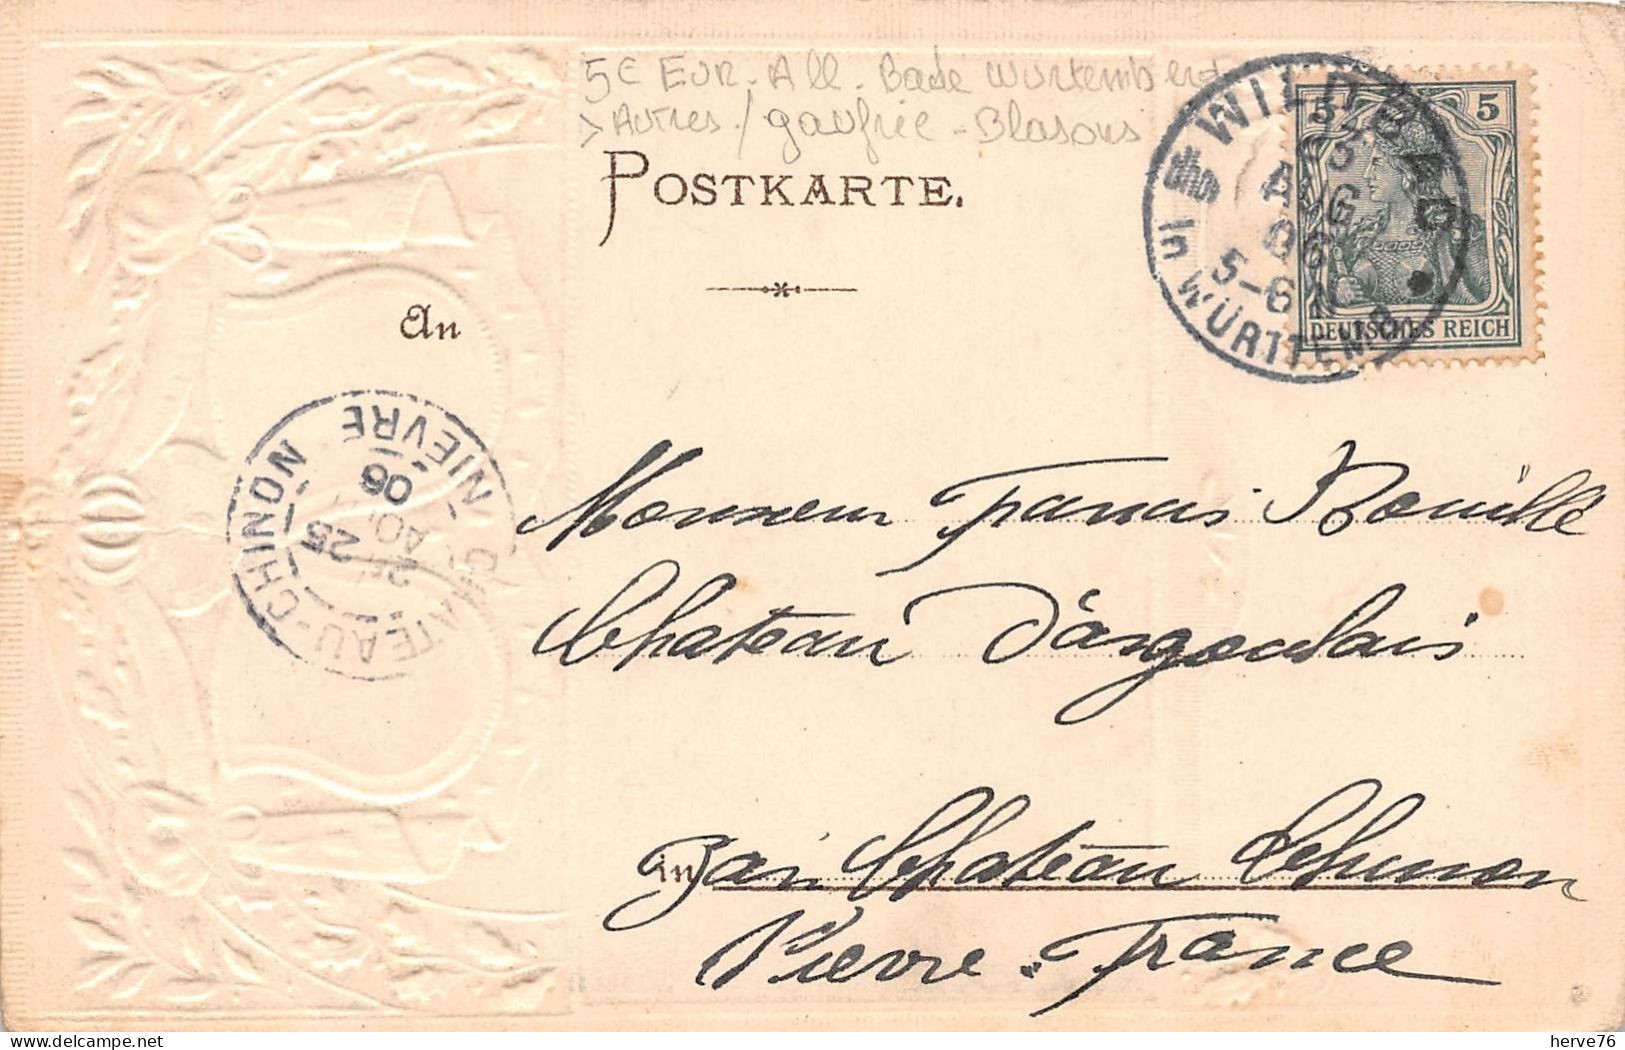 5€ EUR. All. Bade Wurtemberg
> Autres / gaufrée - Blasons
POSTKARTE.
An
WILDBAD
3
AUG
06
5-6 N
in WÜRTTEMB.
5 5
DEUTSCHES REICH
CHATEAU-CHINON
25
AO
06
NIÈVRE
Monsieur Francis Bouillé
Chateau D'argoulais
in
Par Chateau Chinon
Nievre. France
herve76